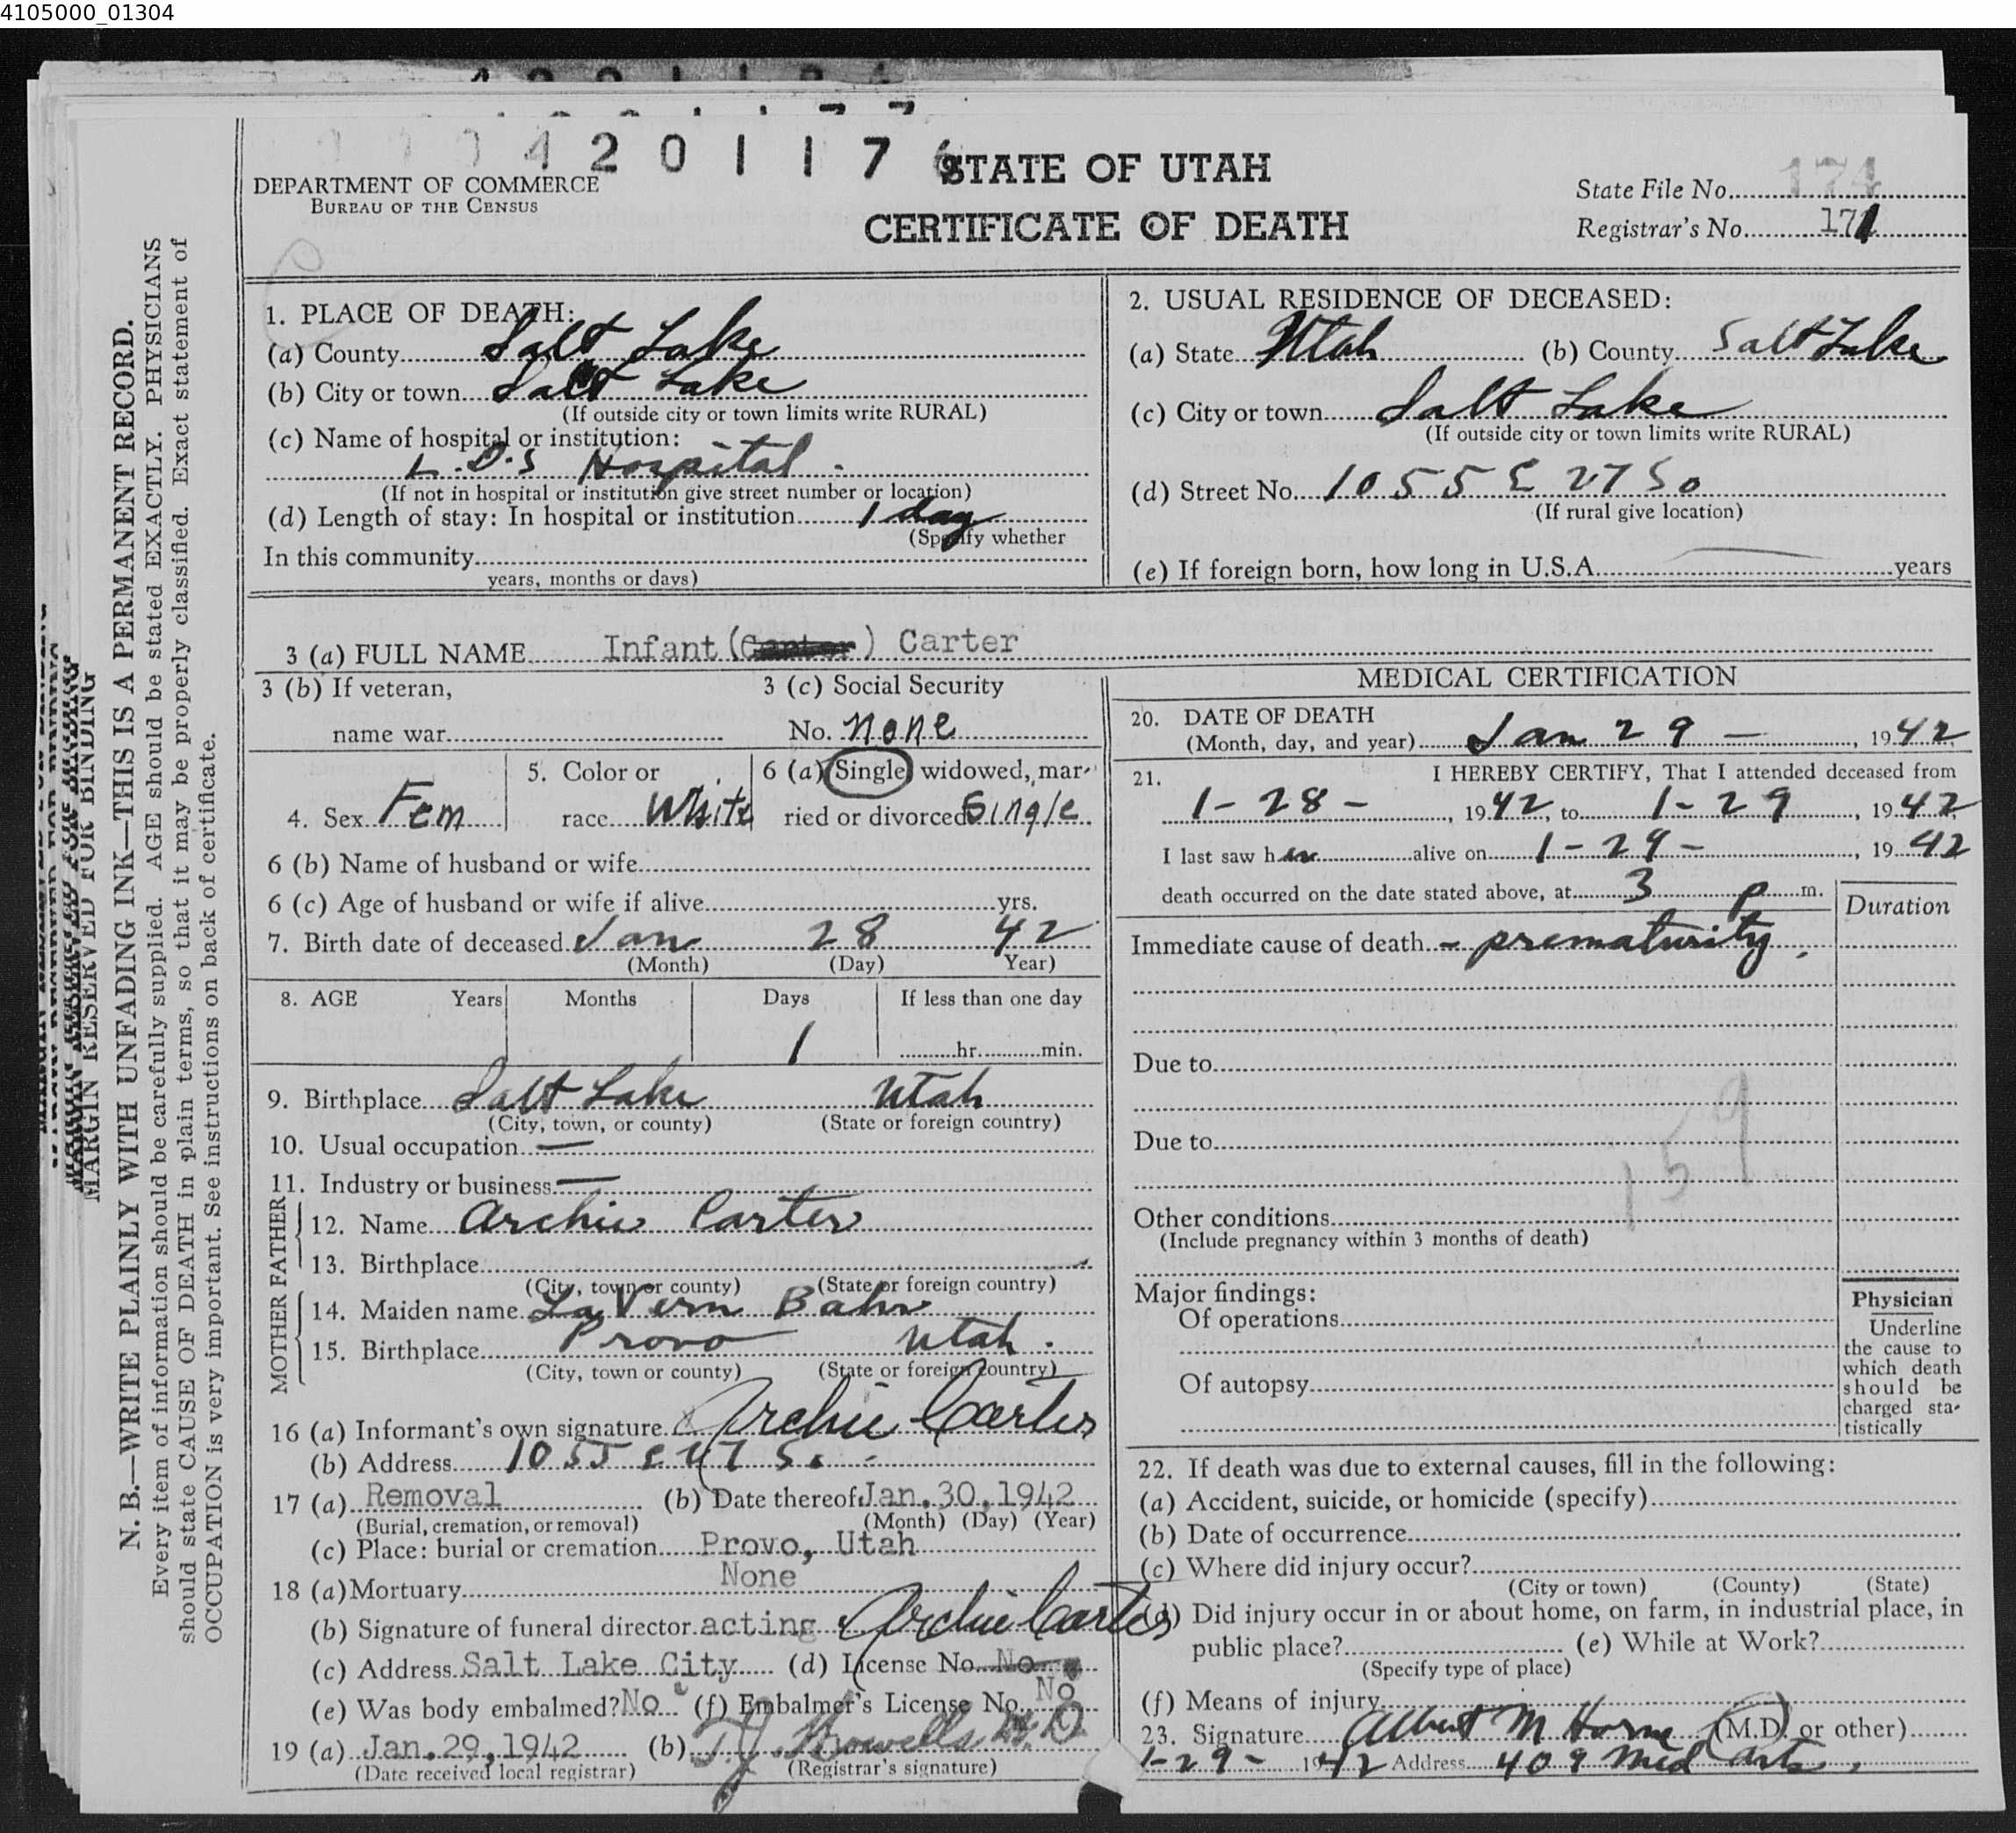 4105000_01304
4 2 0 1 1 7 6
DEPARTMENT OF COMMERCE
BUREAU OF THE CENSUS
STATE OF UTAH
CERTIFICATE OF DEATH
State File No. 174
Registrar's No. 171
MARGIN RESERVED FOR BINDING
N. B.—WRITE PLAINLY WITH UNFADING INK—THIS IS A PERMANENT RECORD.
Every item of information should be carefully supplied. AGE should be stated EXACTLY. PHYSICIANS
should state CAUSE OF DEATH in plain terms, so that it may be properly classified. Exact statement of
OCCUPATION is very important. See instructions on back of certificate.
1. PLACE OF DEATH:
(a) County Salt Lake
(b) City or town Salt Lake
(If outside city or town limits write RURAL)
(c) Name of hospital or institution:
L.D.S Hospital
(If not in hospital or institution give street number or location)
(d) Length of stay: In hospital or institution 1 day
(Specify whether
In this community
years, months or days)
2. USUAL RESIDENCE OF DECEASED:
(a) State Utah (b) County Salt Lake
(c) City or town Salt Lake
(If outside city or town limits write RURAL)
(d) Street No. 1055 E 27 So
(If rural give location)
(e) If foreign born, how long in U.S.A. years
3 (a) FULL NAME Infant ( ) Carter
3 (b) If veteran,
name war
3 (c) Social Security
No. none
4. Sex Fem
5. Color or
race White
6 (a) Single, widowed, mar-
ried or divorced Single
6 (b) Name of husband or wife
6 (c) Age of husband or wife if alive yrs.
7. Birth date of deceased Jan 28 42
(Month) (Day) Year)
8. AGE Years Months Days If less than one day
1 hr. min.
9. Birthplace Salt Lake Utah
(City, town, or county) (State or foreign country)
10. Usual occupation —
11. Industry or business —
FATHER
12. Name Archie Carter
13. Birthplace
(City, town or county) (State or foreign country)
MOTHER
14. Maiden name LaVern Bahr
15. Birthplace Provo Utah.
(City, town or county) (State or foreign country)
16 (a) Informant's own signature Archie Carter
(b) Address 1055 E 27 So.
17 (a) Removal (b) Date thereof Jan.30,1942
(Burial, cremation, or removal) (Month) (Day) (Year)
(c) Place: burial or cremation Provo, Utah
18 (a) Mortuary None
(b) Signature of funeral director acting Archie Carter
(c) Address Salt Lake City (d) License No. No
(e) Was body embalmed? No (f) Embalmer's License No. No
19 (a) Jan.29,1942 (b) T J Howells M.D.
(Date received local registrar) (Registrar's signature)
MEDICAL CERTIFICATION
20. DATE OF DEATH
(Month, day, and year) Jan 29 — , 1942
21. I HEREBY CERTIFY, That I attended deceased from
1-28- , 1942, to 1-29 , 1942
I last saw her alive on 1-29- , 1942
death occurred on the date stated above, at 3 p m.
Duration
Immediate cause of death - prematurity.
Due to
Due to
159
Other conditions
(Include pregnancy within 3 months of death)
Major findings:
Of operations
Of autopsy
Physician
Underline
the cause to
which death
should be
charged sta-
tistically
22. If death was due to external causes, fill in the following:
(a) Accident, suicide, or homicide (specify)
(b) Date of occurrence
(c) Where did injury occur?
(City or town) (County) (State)
(d) Did injury occur in or about home, on farm, in industrial place, in
public place? (e) While at Work?
(Specify type of place)
(f) Means of injury
23. Signature Albert M Horne (M.D. or other)
1-29- 1942 Address 409 Med Arts.